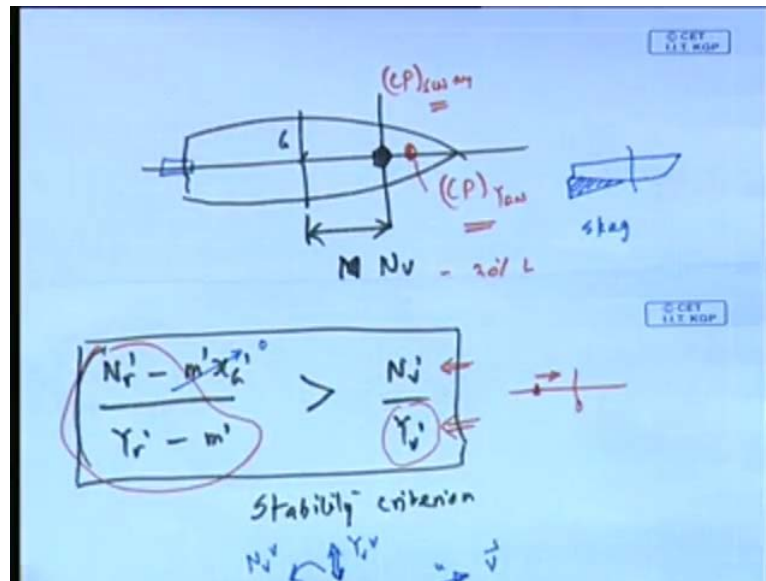 © CET
I.I.T. KGP
(CP) sway
G
(CP) Yaw
skeg
Nv - 30% L
© CET
I.I.T. KGP
Nr' - m' xG' 0
> Nv'
Yr' - m'
Yv'
Stability criterion
Nv v
Yv v
u
V